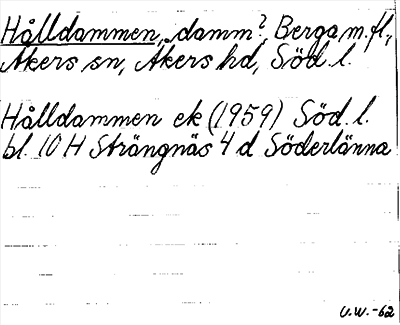 Hålldammen, damm?, Berga m.fl.,
Åkers sn, Åkers hd, Söd. l.
Hålldammen ek (1959) Söd. l.
bl. 10 H Strängnäs 4 d Söderlänna
U.W.-62